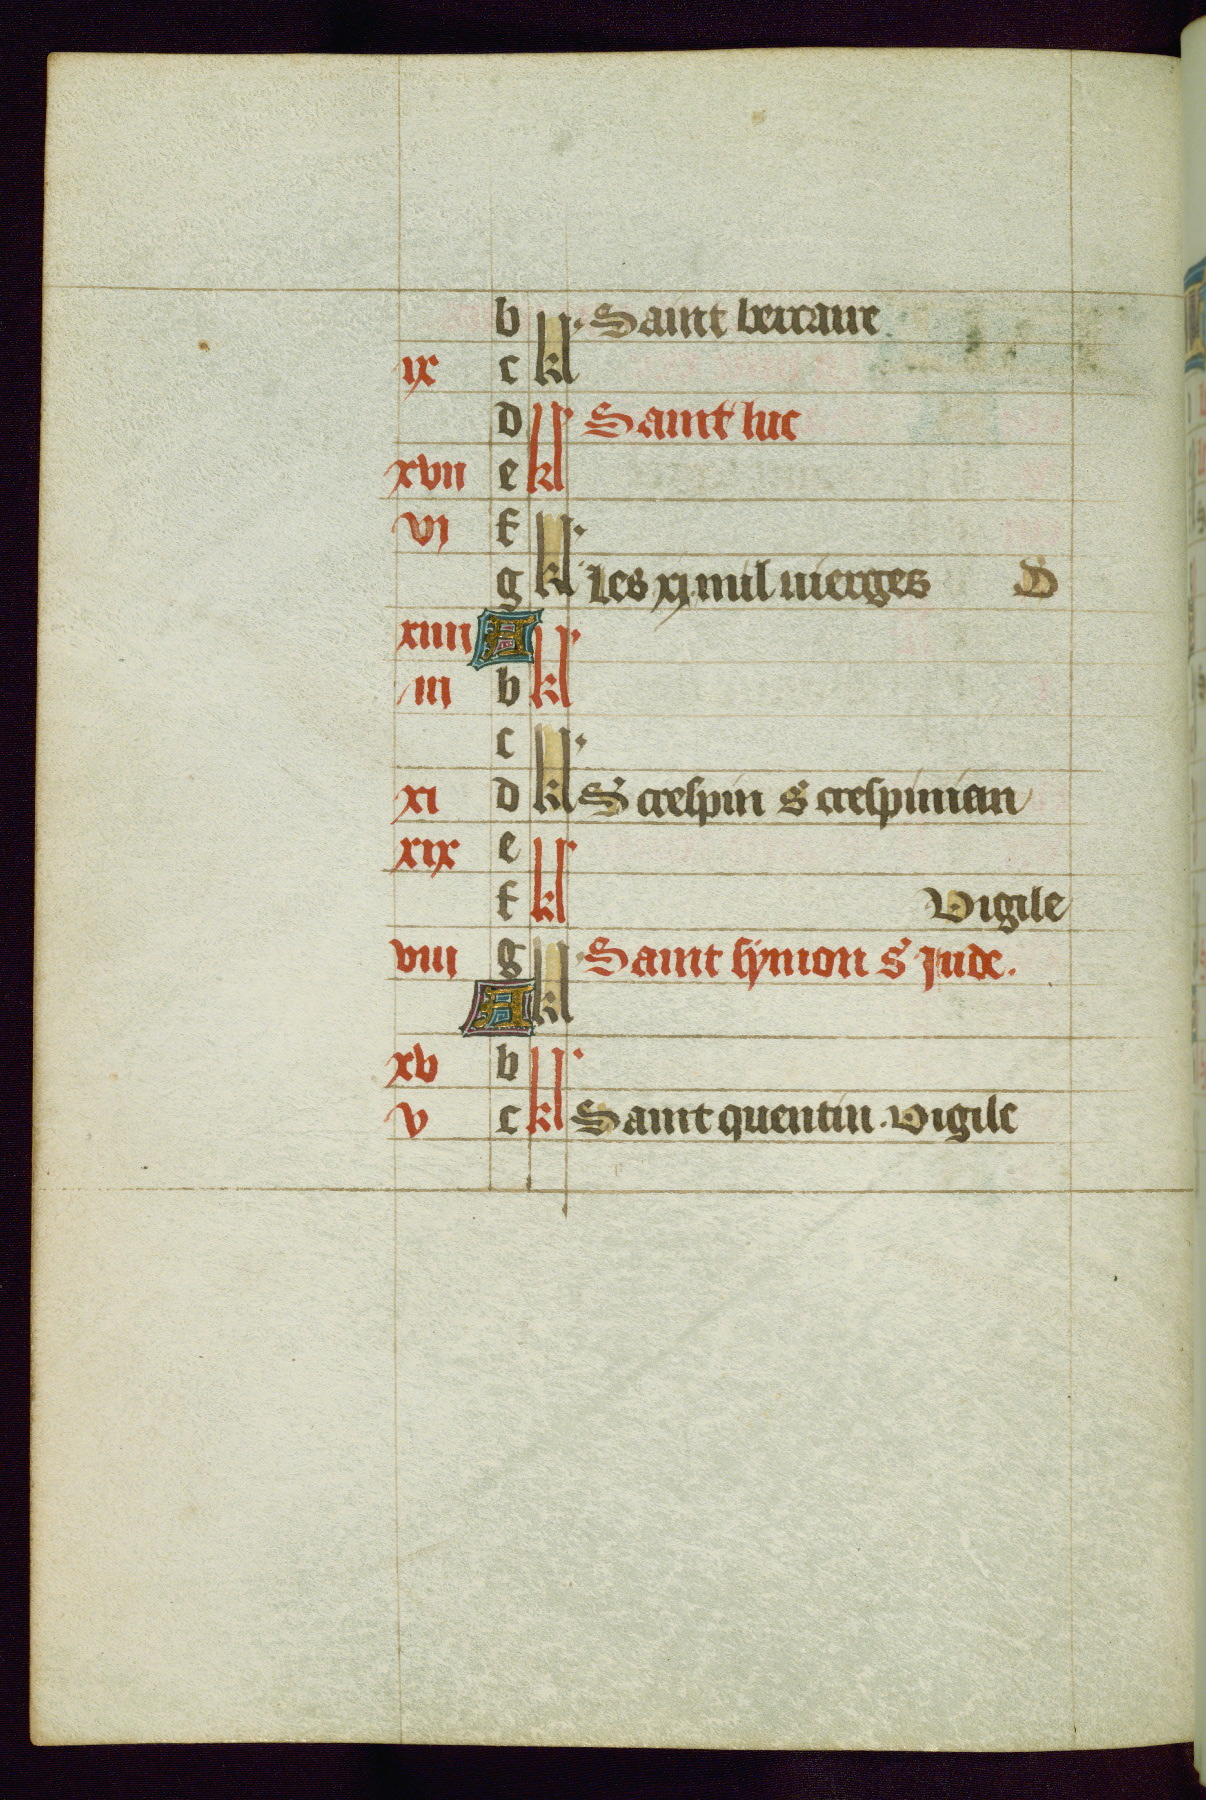 b Saint
ix c kl
d Saint luc
xvii e kl
vi f
g kl Les xi mil vierges D
xiiii A
iii b kl
c
xi d kl S crespin s crespinian
xix e
f kl Vigile
viii g Saint symon s Jude.
A kl
xv b
v c kl Saint quentin. vigile